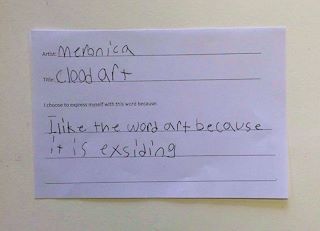 Artist: meronica
Title: clood art
I choose to express myself with this word because:
I like the word art because
it is exsiding